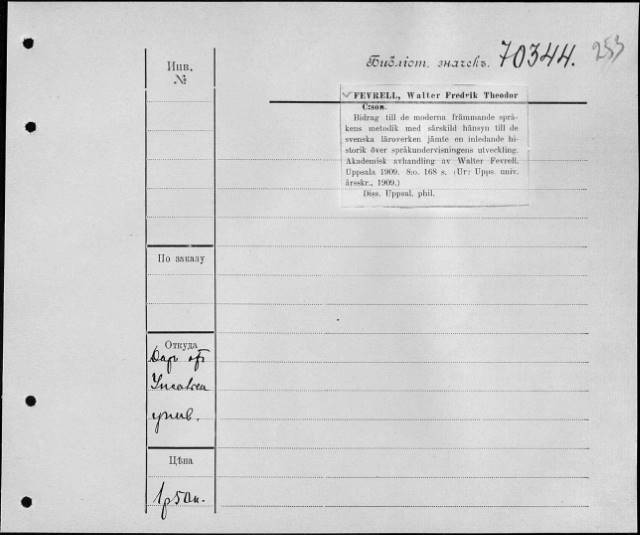 Инв.
№
Библіот. значекъ. 70344. 253
FEVRELL, Walter Fredrik Theodor
C:son.
Bidrag till de moderna främmande språ-
kens metodik med särskild hänsyn till de
svenska läroverken jämte en inledande hi-
storik över språkundervisningens utveckling.
Akademisk avhandling av Walter Fevrell.
Uppsala 1909. 8:o. 168 s. (Ur: Upps. univ.
årsskr., 1909.)
Diss. Uppsal. phil.
По заказу
Откуда
Даръ отъ
унив.
Цѣна
1р50к.